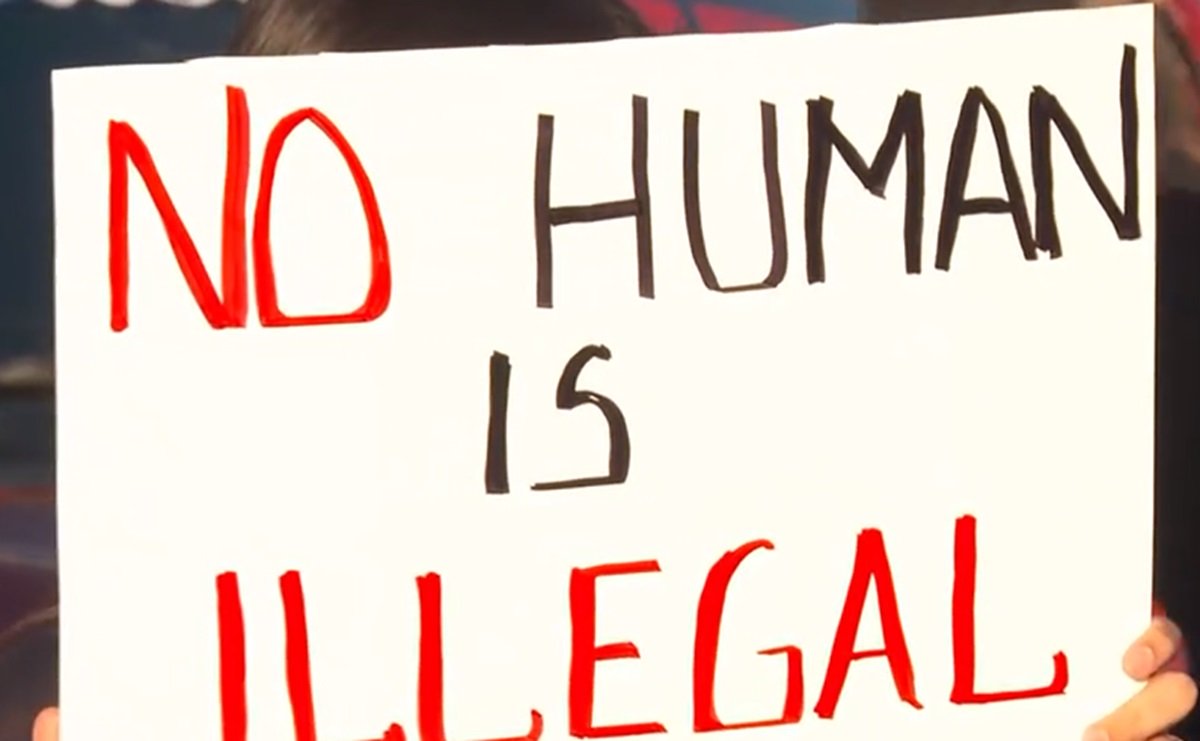 NO HUMAN
IS
ILLEGAL